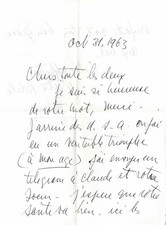 Oct 31, 1963
Chers toute les deux
je suis si heureuse
de votre mot, merci.
J'arrive des U.S.A. ou j'ai
eu un veritable triomphe
(à mon age) j'ai envoyé un
telegram à Claude et votre
soeur. J'espere que votre
santé va bien, ici les